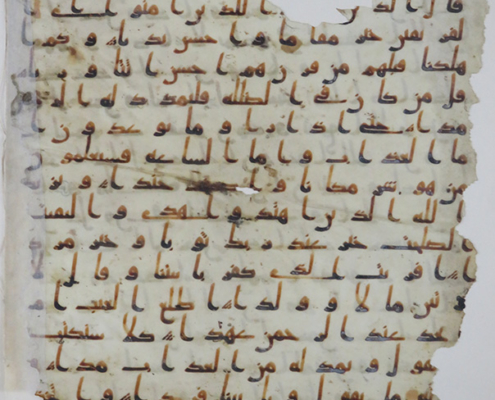 قال الذين للذين امنوا ا
لفريقين خير مقاما واحسن نديا وكم ا
هلكنا قبلهم من قرن هم احسن اثثا وريا
قل من كان في الضللة فليمدد له الر
مدا حتى اذا راوا ما يوعدون ا
ما العذاب واما الساعة فسيعلمون
من هو شر مكانا واضعف جندا ويز
الله الذين اهتدوا هدى والبقيت
الصلحت خير عند ربك ثوابا وخير مر
افريت الذي كفر بايتنا وقال
وتين مالا وولدا اطلع الغيب ام
تخذ عند الرحمن عهدا كلا سنكتب
يقول ونمد له من العذاب مدا
ما يقول وياتينا فردا و